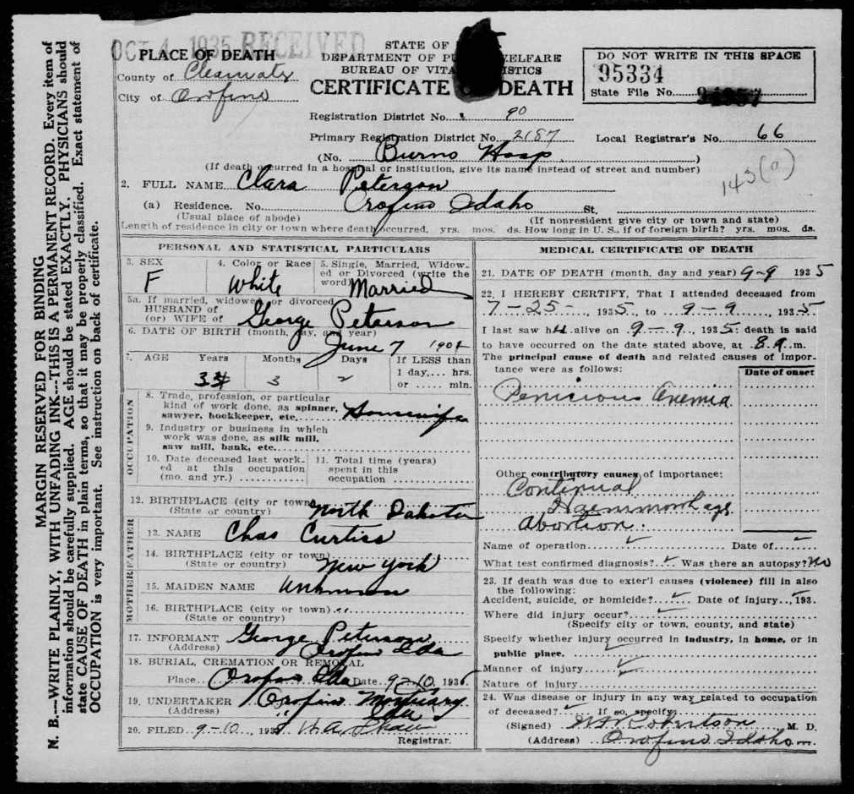 OCT 4 1935 RECEIVED
PLACE OF DEATH
County of Clearwater
City of Orofino
STATE OF
DEPARTMENT OF P WELFARE
BUREAU OF VITA ISTICS
CERTIFICATE OF DEATH
DO NOT WRITE IN THIS SPACE
95334
State File No.
Registration District No. 90
Primary Registration District No. 2187 Local Registrar's No. 66
(No. Burns Hosp. )
(If death occurred in a hospital or institution, give its name instead of street and number)
143(a)
2. FULL NAME Clara Peterson
(a) Residence. No. Orofino Idaho St.
(Usual place of abode) (If nonresident give city or town and state)
Length of residence in city or town where death occurred. yrs. mos. ds. How long in U. S., if of foreign birth? yrs. mos. ds.
PERSONAL AND STATISTICAL PARTICULARS
3. SEX F
4. Color or Race White
5. Single, Married, Widowed or Divorced (write the word) Married
5a. If married, widowed or divorced
HUSBAND of
(or) WIFE of George Peterson
6. DATE OF BIRTH (month, day, and year)
June 7
7. AGE Years Months Days If LESS than
1 day, hrs.
or min.
3
2
OCCUPATION
8. Trade, profession, or particular
kind of work done, as spinner,
sawyer, bookkeeper, etc. Housewife
9. Industry or business in which
work was done, as silk mill,
saw mill, bank, etc.
10. Date deceased last work-
ed at this occupation
(mo. and yr.)
11. Total time (years)
spent in this
occupation
12. BIRTHPLACE (city or town)
(State or country) North Dakota
FATHER
13. NAME Chas Curtiss
14. BIRTHPLACE (city or town)
(State or country) New York
MOTHER
15. MAIDEN NAME Unknown
16. BIRTHPLACE (city or town)
(State or country)
17. INFORMANT George Peterson
(Address) Orofino Ida
18. BURIAL, CREMATION OR REMOVAL
Place Orofino Ida Date 9-10, 193
19. UNDERTAKER Orofino Mortuary
(Address) Ida
20. FILED 9-10, 193
Registrar.
MEDICAL CERTIFICATE OF DEATH
21. DATE OF DEATH (month, day and year) 9-9 1935
22. I HEREBY CERTIFY, That I attended deceased from
7-25-, 1935, to 9-9, 1935
I last saw her alive on 9-9, 1935; death is said
to have occurred on the date stated above, at 8 A. m.
The principal cause of death and related causes of impor-
tance were as follows:
Date of onset
Penicious Anemia
Other contributory causes of importance:
Continual
Haemmorhage
abortion
Name of operation Date of
What test confirmed diagnosis? Was there an autopsy? No
23. If death was due to exter'l causes (violence) fill in also
the following:
Accident, suicide, or homicide? Date of injury, 193
Where did injury occur?
(Specify city or town, county, and state)
Specify whether injury occurred in industry, in home, or in
public place.
Manner of injury
Nature of injury
24. Was disease or injury in any way related to occupation
of deceased? If so, specify
(Signed) Robertson M. D.
(Address) Orofino Idaho
MARGIN RESERVED FOR BINDING
N. B.---WRITE PLAINLY, WITH UNFADING INK---THIS IS A PERMANENT RECORD. Every item of
information should be carefully supplied. AGE should be stated EXACTLY. PHYSICIANS should
state CAUSE OF DEATH in plain terms, so that it may be properly classified. Exact statement of
OCCUPATION is very important. See instruction on back of certificate.